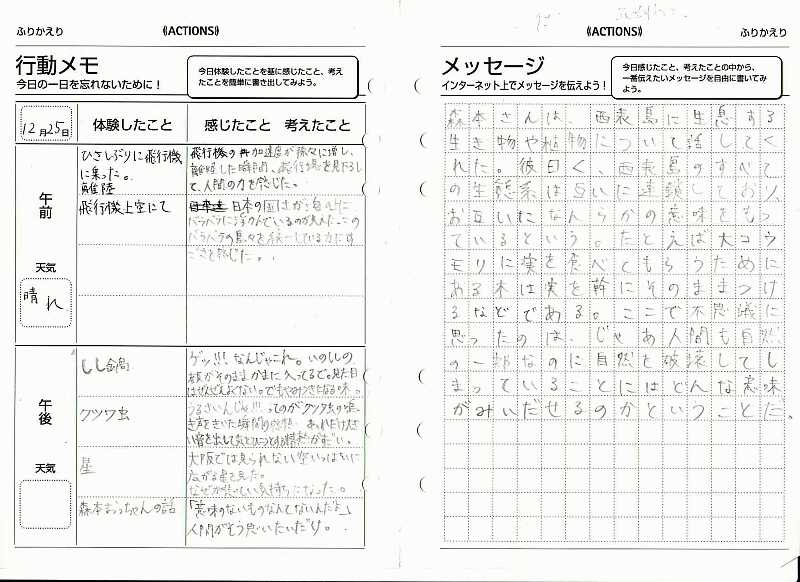 ふりかえり
《ACTIONS》
行動メモ
今日の一日を忘れないために！
今日体験したことを基に感じたこと、考え
たことを簡単に書き出してみよう。
12月25日
体験したこと
感じたこと 考えたこと
午前
天気
晴れ
ひさしぶりに飛行機
に乗った。
離陸
飛行機の加速度が徐々に増し、
離陸した瞬間、飛行場を見下ろし
て、人間の力を感じた。
飛行機上空にて
日本の国は
バラバラの島々を統一している
ごさを感じた。
午後
天気
しし鍋
ゲッ!!! なんじゃこれ。いのししの
クツワ虫
うるさいんじゃ!!!
星
大阪では見られない空いっぱいに
広がる星を見た。
森本おっちゃんの話
「意味のないものなんてないんだよ」
人間がそう思いたいだけ。
《ACTIONS》
ふりかえり
メッセージ
インターネット上でメッセージを伝えよう！
今日感じたこと、考えたことの中から、
一番伝えたいメッセージを自由に書いてみ
よう。
森本さんは、西表島に生息する
生き物や植物について話してく
れた。彼曰く、西表島のすべて
の生態系は互いに連鎖しており、
お互いになんらかの意味をもっ
ているという。たとえば大コウ
モリに実を食べてもらうために
ある木は実を幹にそのままつけ
るなどである。ここで不思議に
思ったのは、じゃあ人間も自然
の一部なのに自然を破壊してし
まっていることにはどんな意味
がみいだせるのかということだ。